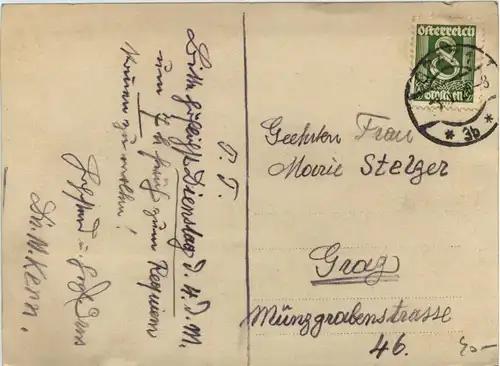 P. T.
Bitte höflichst Dienstag d. 4. d. M.
um 7h früh zum Requiem
kommen zu wollen!
Dr. W. Kern.
Österreich
8
Groschen
* 3b *
Geehrten Frau
Marie Stelzer
Graz
Münzgrabenstrasse
46.
40-